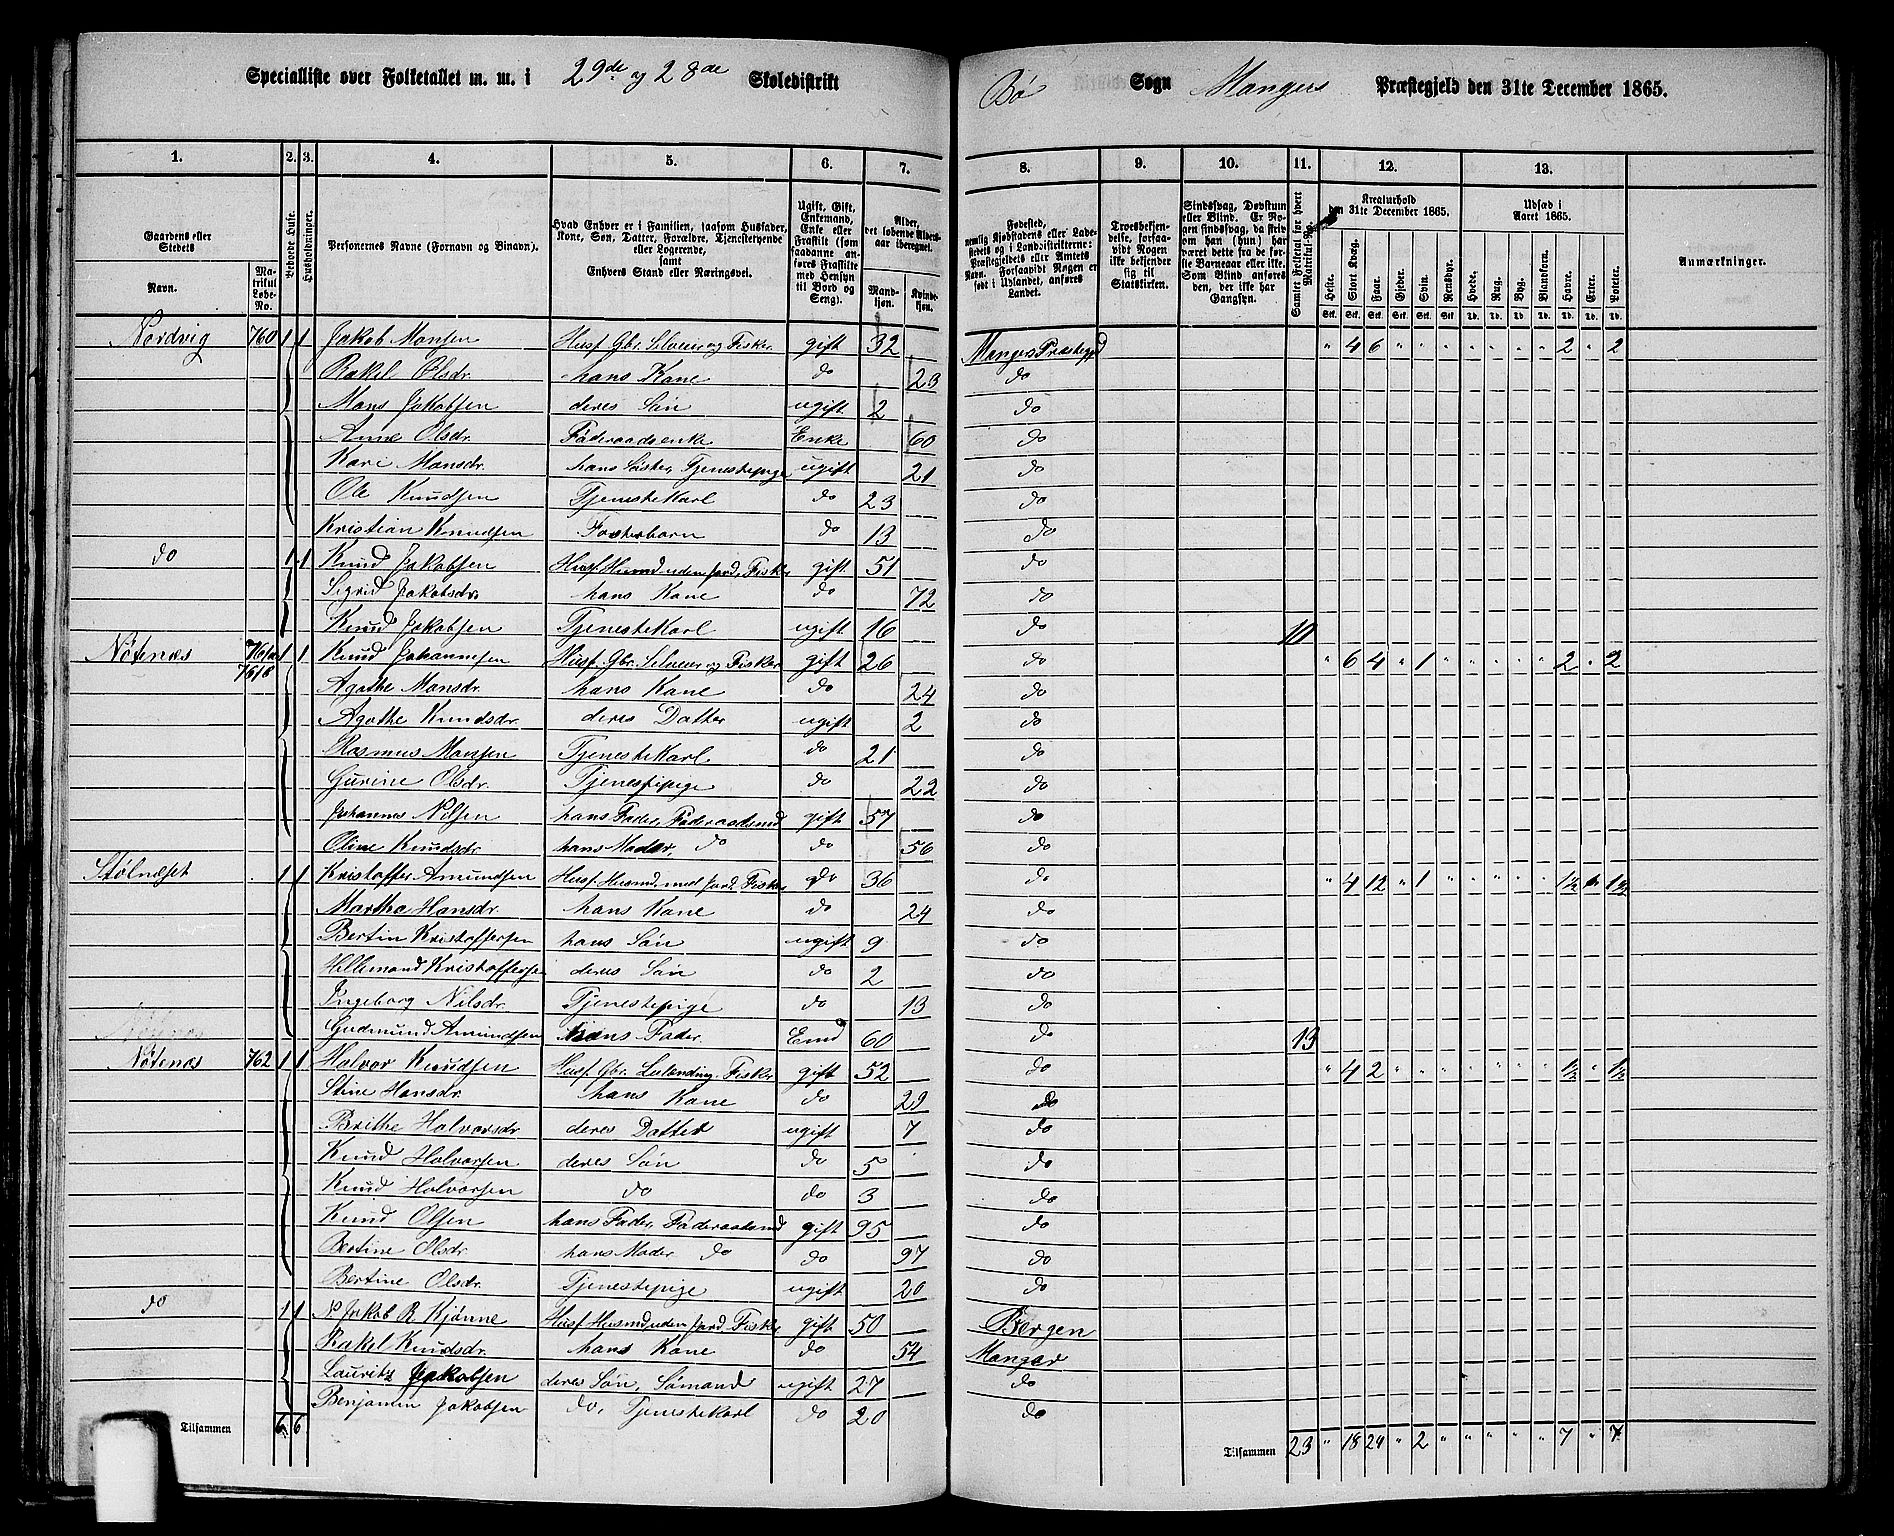 Specialliste over Folketallet m. m. i 29de og 28de Skoledistrikt Bø Sogn Mangers Præstegjeld den 31te December 1865.
1. 2. 3. 4. 5. 6. 7. 8. 9. 10. 11. 12. 13.
Gaardens eller Stedets Navn. Matrikul Løbe-No. Beboede Huse. Husholdninger. Personernes Navne (Fornavn og Binavn). Hvad Enhver er i Familien, saasom Husfader, Kone, Søn, Datter, Forældre, Tjenestetyende eller Logerende, samt Enhvers Stand eller Næringsvei. Ugift, Gift, Enkemand, Enke eller Fraskilt (som saadanne anføres Fraskilte med Hensyn til Bord og Seng). Alder, det løbende Alders-aar iberegnet. Mandkjøn. Kvindekjøn.
Trosbekjendelse, forsaavidt Nogen ikke bekjender sig til Statskirken. Samlet Folketal for hvert Matrikul-No. Kreaturhold den 31te December 1865. Udsæd i Aaret 1865. Anmærkninger.
Heste. Stort Kvæg. Faar. Gjeder. Svin. Rensdyr. Hvede. Rug. Byg. Blandkorn. Havre. Erter. Poteter.
Nordvig 760 1 1 Jakob Monsen Husf. Gbr. Selveier og Fisker gift 32 Mangers Præstegjd " 4 6 " " " " " " " 2 " 2
Rakel Olsdr. hans Kone do 23 do
Mons Jakobsen deres Søn ugift 2 do
Anne Olsdr. Føderaadsenke Enke 60 do
Kari Monsdr. hans Søster, Tjenestepige ugift 21 do
Ole Knudsen Tjenestekarl do 23 do
Kristian Knudsen Fosterbarn do 13 do
do 1 1 Knud Jakobsen Husf. Husmd uden Jord, Fisker gift 51 do
Sigrid Jakobsdr hans Kone do 72 do
Knud Jakobsen Tjenestekarl ugift 16 do 10
Nøtenæs 761a 761b 1 1 Knud Johannesen Husf. Gbr. Selveier og Fisker gift 26 do " 6 4 " 1 " " " " " 2 " 2
Agathe Monsdr. hans Kone do 24 do
Agathe Knudsdr. deres Datter ugift 2 do
Rasmus Monsen Tjenestekarl do 21 do
Gurine Olsdr. Tjenestepige do 22 do
Johannes Nilsen hans Fader, Føderaadsmd gift 57 do
Oline Knudsdr. hans Moder, do do 56 do
Stølnæset 1 1 Kristoffer Amundsen Husf. Husmd. med Jord, Fisker do 36 do " 4 12 " 1 " " " " " 1½ " 1½
Martha Hansdr. hans Kone do 24 do
Bertin Kristoffersen hans Søn ugift 9 do
Hillemand Kristoffersen deres Søn do 2 do
Ingeborg Nilsdr. Tjenestepige do 13 do
Gudmund Amundsen hans Fader. Emd 60 do 13
Nøtenæs 762 1 1 Halvor Knudsen Husf. Gbr. Leilænding, Fisker gift 52 do " 4 2 " " " " " " " 1½ " 1½
Stine Hansdr. hans Kone do 29 do
Brithe Halvorsdr deres Datter ugift 7 do
Knud Halvorsen deres Søn do 5 do
Knud Halvorsen do do 3 do
Knud Olsen hans Fader, Føderaadsmd gift 95 do
Bertine Olsdr. hans Moder do do 97 do
Bertine Olsdr. Tjenestepige ugift 20 do
do 1 1 Jakob R Kjønne Husf. Husmd uden Jord. Fisker gift 50 Bergen
Rakel Knudsdr. hans Kone do 54 Manger
Lauritz Jakobsen deres Søn, Sømand ugift 27 do
Benjamin Jakobsen do, Tjenestekarl do 20 do
Tilsammen 6 6 Tilsammen 23 " 18 24 " 2 " " " " " 7 " 7